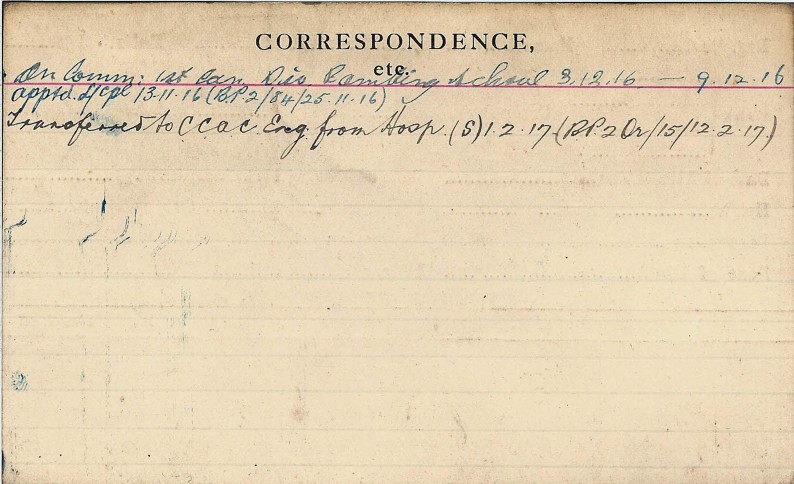 CORRESPONDENCE,
etc.
On Comm: 1st Can Div Bombing School 3.12.16 — 9.12.16
apptd. L/Cpl 13.11.16 (B.P.2/84/25.11.16)
Transferred to C.C.A.C. Eng from Hosp. (S) 1.2.17 (B.P.2 Or/15/12.2.17.)